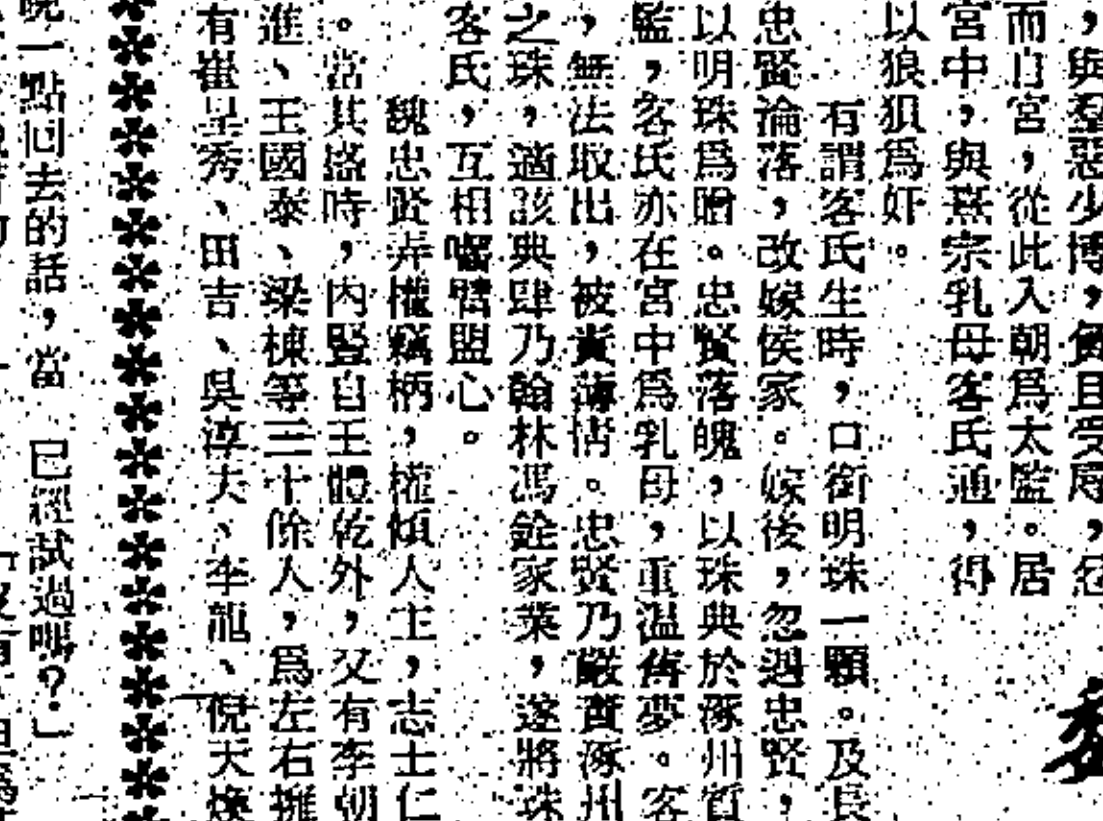 ，與羣惡少博，負且受辱，忿
而自宮，從此入朝爲太監。居
宮中，與熹宗乳母客氏通，得
以狼狽爲奸。
有謂客氏生時，口銜明珠一顆。及長
忠賢淪落，改嫁侯家。嫁後，忽遇忠賢，
以明珠爲贈。忠賢落魄，以珠典於涿州質
監，客氏亦在宮中爲乳母，重溫舊夢。客
，無法取出，被責薄情。忠賢乃嚴責涿州
之珠，適該典肆乃翰林馮銓家業，遂將珠
客氏，互相囓臂盟心。
魏忠賢弄權竊柄，權傾人主，志士仁
。當其盛時，內豎自王體乾外，又有李朝
進、王國泰、梁棟等三十餘人，爲左右擁
有崔呈秀、田吉、吳淳夫、李龍、倪天煥
晚一點回去的話，當 已經試過嗎？」